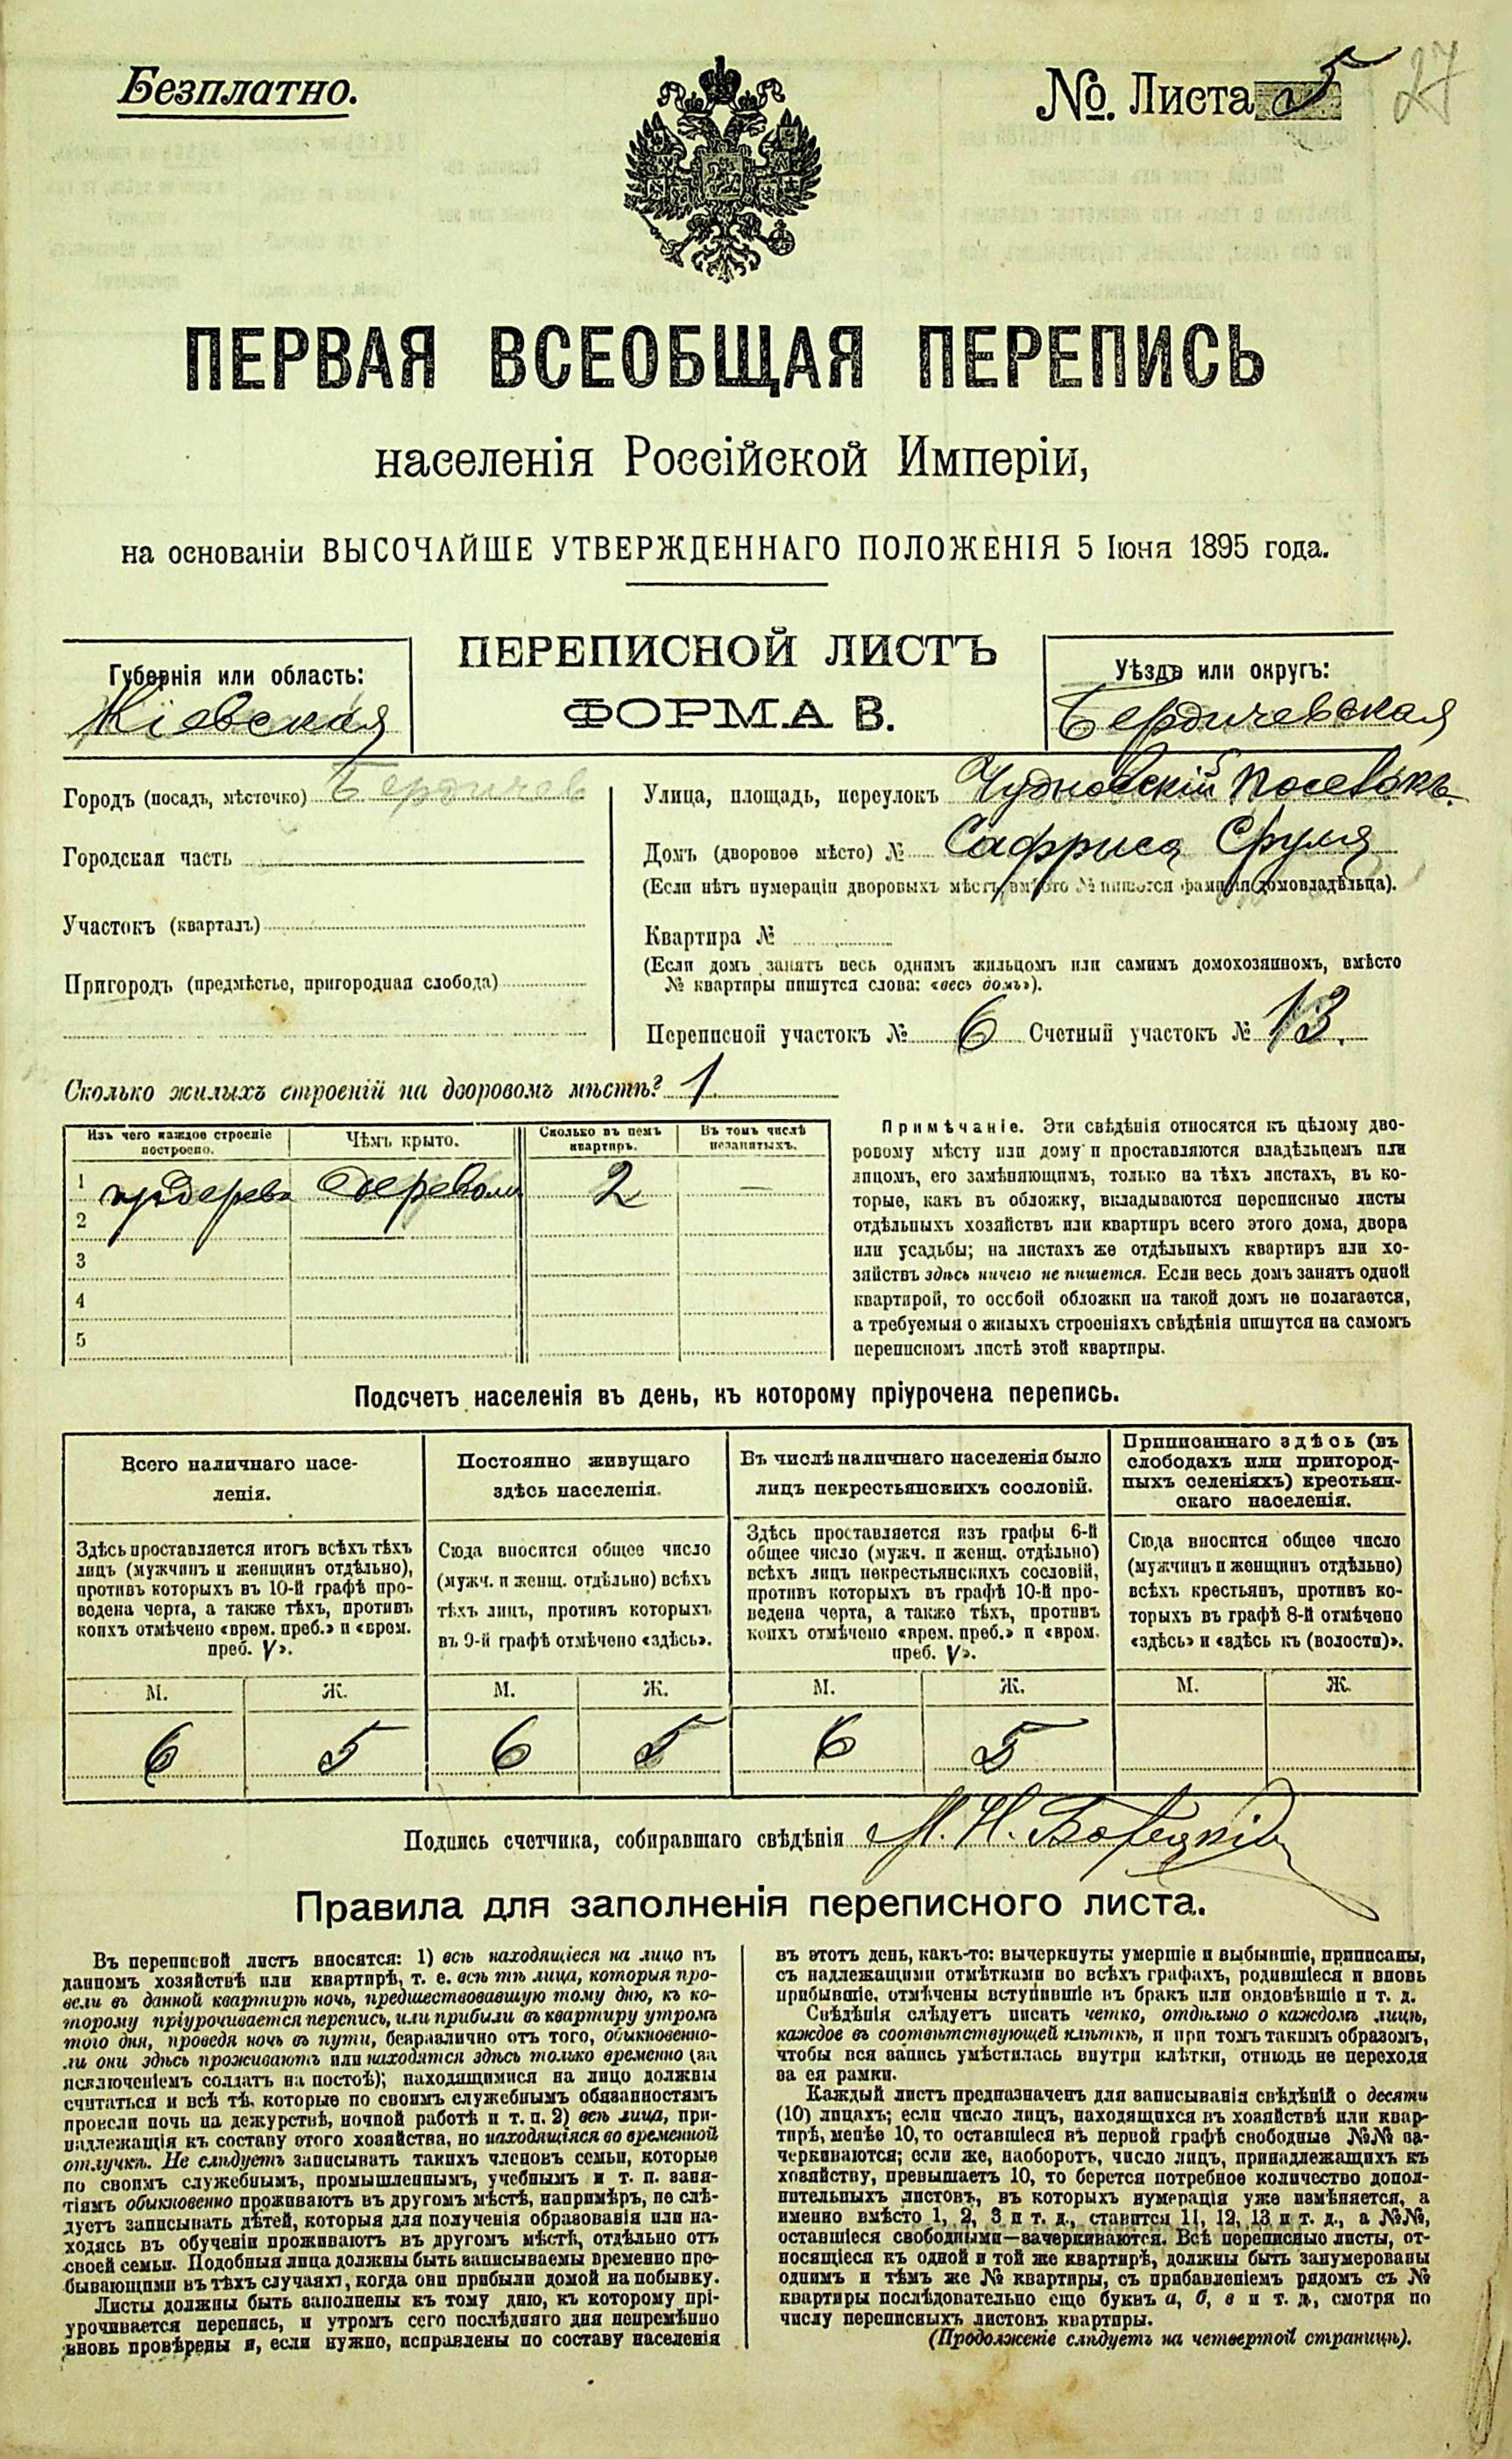 Безплатно.
№. Листа 5
27
ПЕРВАЯ ВСЕОБЩАЯ ПЕРЕПИСЬ
населенія Россійской Имперіи,
на основаніи ВЫСОЧАЙШЕ УТВЕРЖДЕННАГО ПОЛОЖЕНІЯ 5 Іюня 1895 года.
Губернія или область:
Кіевская
ПЕРЕПИСНОЙ ЛИСТЪ
ФОРМА В.
Уѣздъ или округъ:
Бердичевская
Городъ (посадъ, мѣстечко) Бердичев
Городская часть
Участокъ (кварталъ)
Пригородъ (предмѣстье, пригородная слобода)
Улица, площадь, переулокъ Чудновскій
Домъ (дворовое мѣсто) № Сруля
(Если нѣтъ нумераціи дворовыхъ мѣстъ, вмѣсто № пишется фамилія домовладѣльца).
Квартира №
(Если домъ занятъ весь однимъ жильцомъ или самимъ домохозяиномъ, вмѣсто
№ квартиры пишутся слова: «весь домъ»).
Переписной участокъ № 6 Счетный участокъ № 13.
Сколько жилыхъ строеній на дворовомъ мѣстѣ? 1
Изъ чего каждое строеніе
построено.
Чѣмъ крыто.
Сколько въ немъ
квартиръ.
Въ томъ числѣ
незанятыхъ.
1 деревом 2 —
2
3
4
5
Примѣчаніе. Эти свѣдѣнія относятся къ цѣлому дво-
ровому мѣсту или дому и проставляются владѣльцемъ или
лицомъ, его замѣняющимъ, только на тѣхъ листахъ, въ ко-
торые, какъ въ обложку, вкладываются переписные листы
отдѣльныхъ хозяйствъ или квартиръ всего этого дома, двора
или усадьбы; на листахъ же отдѣльныхъ квартиръ или хо-
зяйствъ здѣсь ничего не пишется. Если весь домъ занятъ одной
квартирой, то особой обложки на такой домъ не полагается,
а требуемыя о жилыхъ строеніяхъ свѣдѣнія пишутся на самомъ
переписномъ листѣ этой квартиры.
Подсчетъ населенія въ день, къ которому пріурочена перепись.
Всего наличнаго насе-
ленія.
Здѣсь проставляется итогъ всѣхъ тѣхъ
лицъ (мужчинъ и женщинъ отдѣльно),
противъ которыхъ въ 10-й графѣ про-
ведена черта, а также тѣхъ, противъ
коихъ отмѣчено «врем. преб.» и «врем.
преб. V».
Постоянно живущаго
здѣсь населенія.
Сюда вносится общее число
(мужч. и женщ. отдѣльно) всѣхъ
тѣхъ лицъ, противъ которыхъ
въ 9-й графѣ отмѣчено «здѣсь».
Въ числѣ наличнаго населенія было
лицъ некрестьянскихъ сословій.
Здѣсь проставляется изъ графы 6-й
общее число (мужч. и женщ. отдѣльно)
всѣхъ лицъ некрестьянскихъ сословій,
противъ которыхъ въ графѣ 10-й про-
ведена черта, а также тѣхъ, противъ
коихъ отмѣчено «врем. преб.» и «врем.
преб. V».
Приписаннаго здѣсь (въ
слободахъ или пригород-
ныхъ селеніяхъ) крестьян-
скаго населенія.
Сюда вносится общее число
(мужчинъ и женщинъ отдѣльно)
всѣхъ крестьянъ, противъ ко-
торыхъ въ графѣ 8-й отмѣчено
«здѣсь» и «здѣсь къ (волости)».
М. Ж. М. Ж. М. Ж. М. Ж.
6 5 6 5 6 5
Подпись счетчика, собиравшаго свѣдѣнія М. Н.
Правила для заполненія переписного листа.
Въ переписной листъ вносятся: 1) всѣ находящіеся на лицо въ
данномъ хозяйствѣ или квартирѣ, т. е. всѣ тѣ лица, которыя про-
вели въ данной квартирѣ ночь, предшествовавшую тому дню, къ ко-
торому пріурочивается перепись, или прибыли въ квартиру утромъ
того дня, проведя ночь въ пути, безразлично отъ того, обыкновенно-
ли они здѣсь проживаютъ или находятся здѣсь только временно (за
исключеніемъ солдатъ на постоѣ); находящимися на лицо должны
считаться и всѣ тѣ, которые по своимъ служебнымъ обязанностямъ
провели ночь на дежурствѣ, ночной работѣ и т. п. 2) всѣ лица, при-
надлежащія къ составу этого хозяйства, но находящіяся во временной
отлучкѣ. Не слѣдуетъ записывать такихъ членовъ семьи, которые
по своимъ служебнымъ, промышленнымъ, учебнымъ и т. п. заня-
тіямъ обыкновенно проживаютъ въ другомъ мѣстѣ, напримѣръ, не слѣ-
дуетъ записывать дѣтей, которыя для полученія образованія или на-
ходясь въ обученіи проживаютъ въ другомъ мѣстѣ, отдѣльно отъ
своей семьи. Подобныя лица должны быть записываемы временно пре-
бывающими въ тѣхъ случаяхъ, когда они прибыли домой на побывку.
Листы должны быть заполнены къ тому дню, къ которому прі-
урочивается перепись, и утромъ сего послѣдняго дня непремѣнно
вновь провѣрены и, если нужно, исправлены по составу населенія
въ этотъ день, какъ-то: вычеркнуты умершіе и выбывшіе, приписаны,
съ надлежащими отмѣтками во всѣхъ графахъ, родившіеся и вновь
прибывшіе, отмѣчены вступившіе въ бракъ или овдовѣвшіе и т. д.
Свѣдѣнія слѣдуетъ писать четко, отдѣльно о каждомъ лицѣ,
каждое въ соотвѣтствующей клѣткѣ, и при томъ такимъ образомъ,
чтобы вся запись умѣстилась внутри клѣтки, отнюдь не переходя
за ея рамки.
Каждый листъ предназначенъ для записыванія свѣдѣній о десяти
(10) лицахъ; если число лицъ, находящихся въ хозяйствѣ или квар-
тирѣ, менѣе 10, то оставшіеся въ первой графѣ свободные №№ за-
черкиваются; если же, наоборотъ, число лицъ, принадлежащихъ къ
хозяйству, превышаетъ 10, то берется потребное количество допол-
нительныхъ листовъ, въ которыхъ нумерація уже измѣняется, а
именно вмѣсто 1, 2, 3 и т. д., ставится 11, 12, 13 и т. д., а №№,
оставшіеся свободными—зачеркиваются. Всѣ переписные листы, от-
носящіеся къ одной и той же квартирѣ, должны быть занумерованы
однимъ и тѣмъ же № квартиры, съ прибавленіемъ рядомъ съ №
квартиры послѣдовательно еще буквъ а, б, в и т. д., смотря по
числу переписныхъ листовъ квартиры.
(Продолженіе слѣдуетъ на четвертой страницѣ).